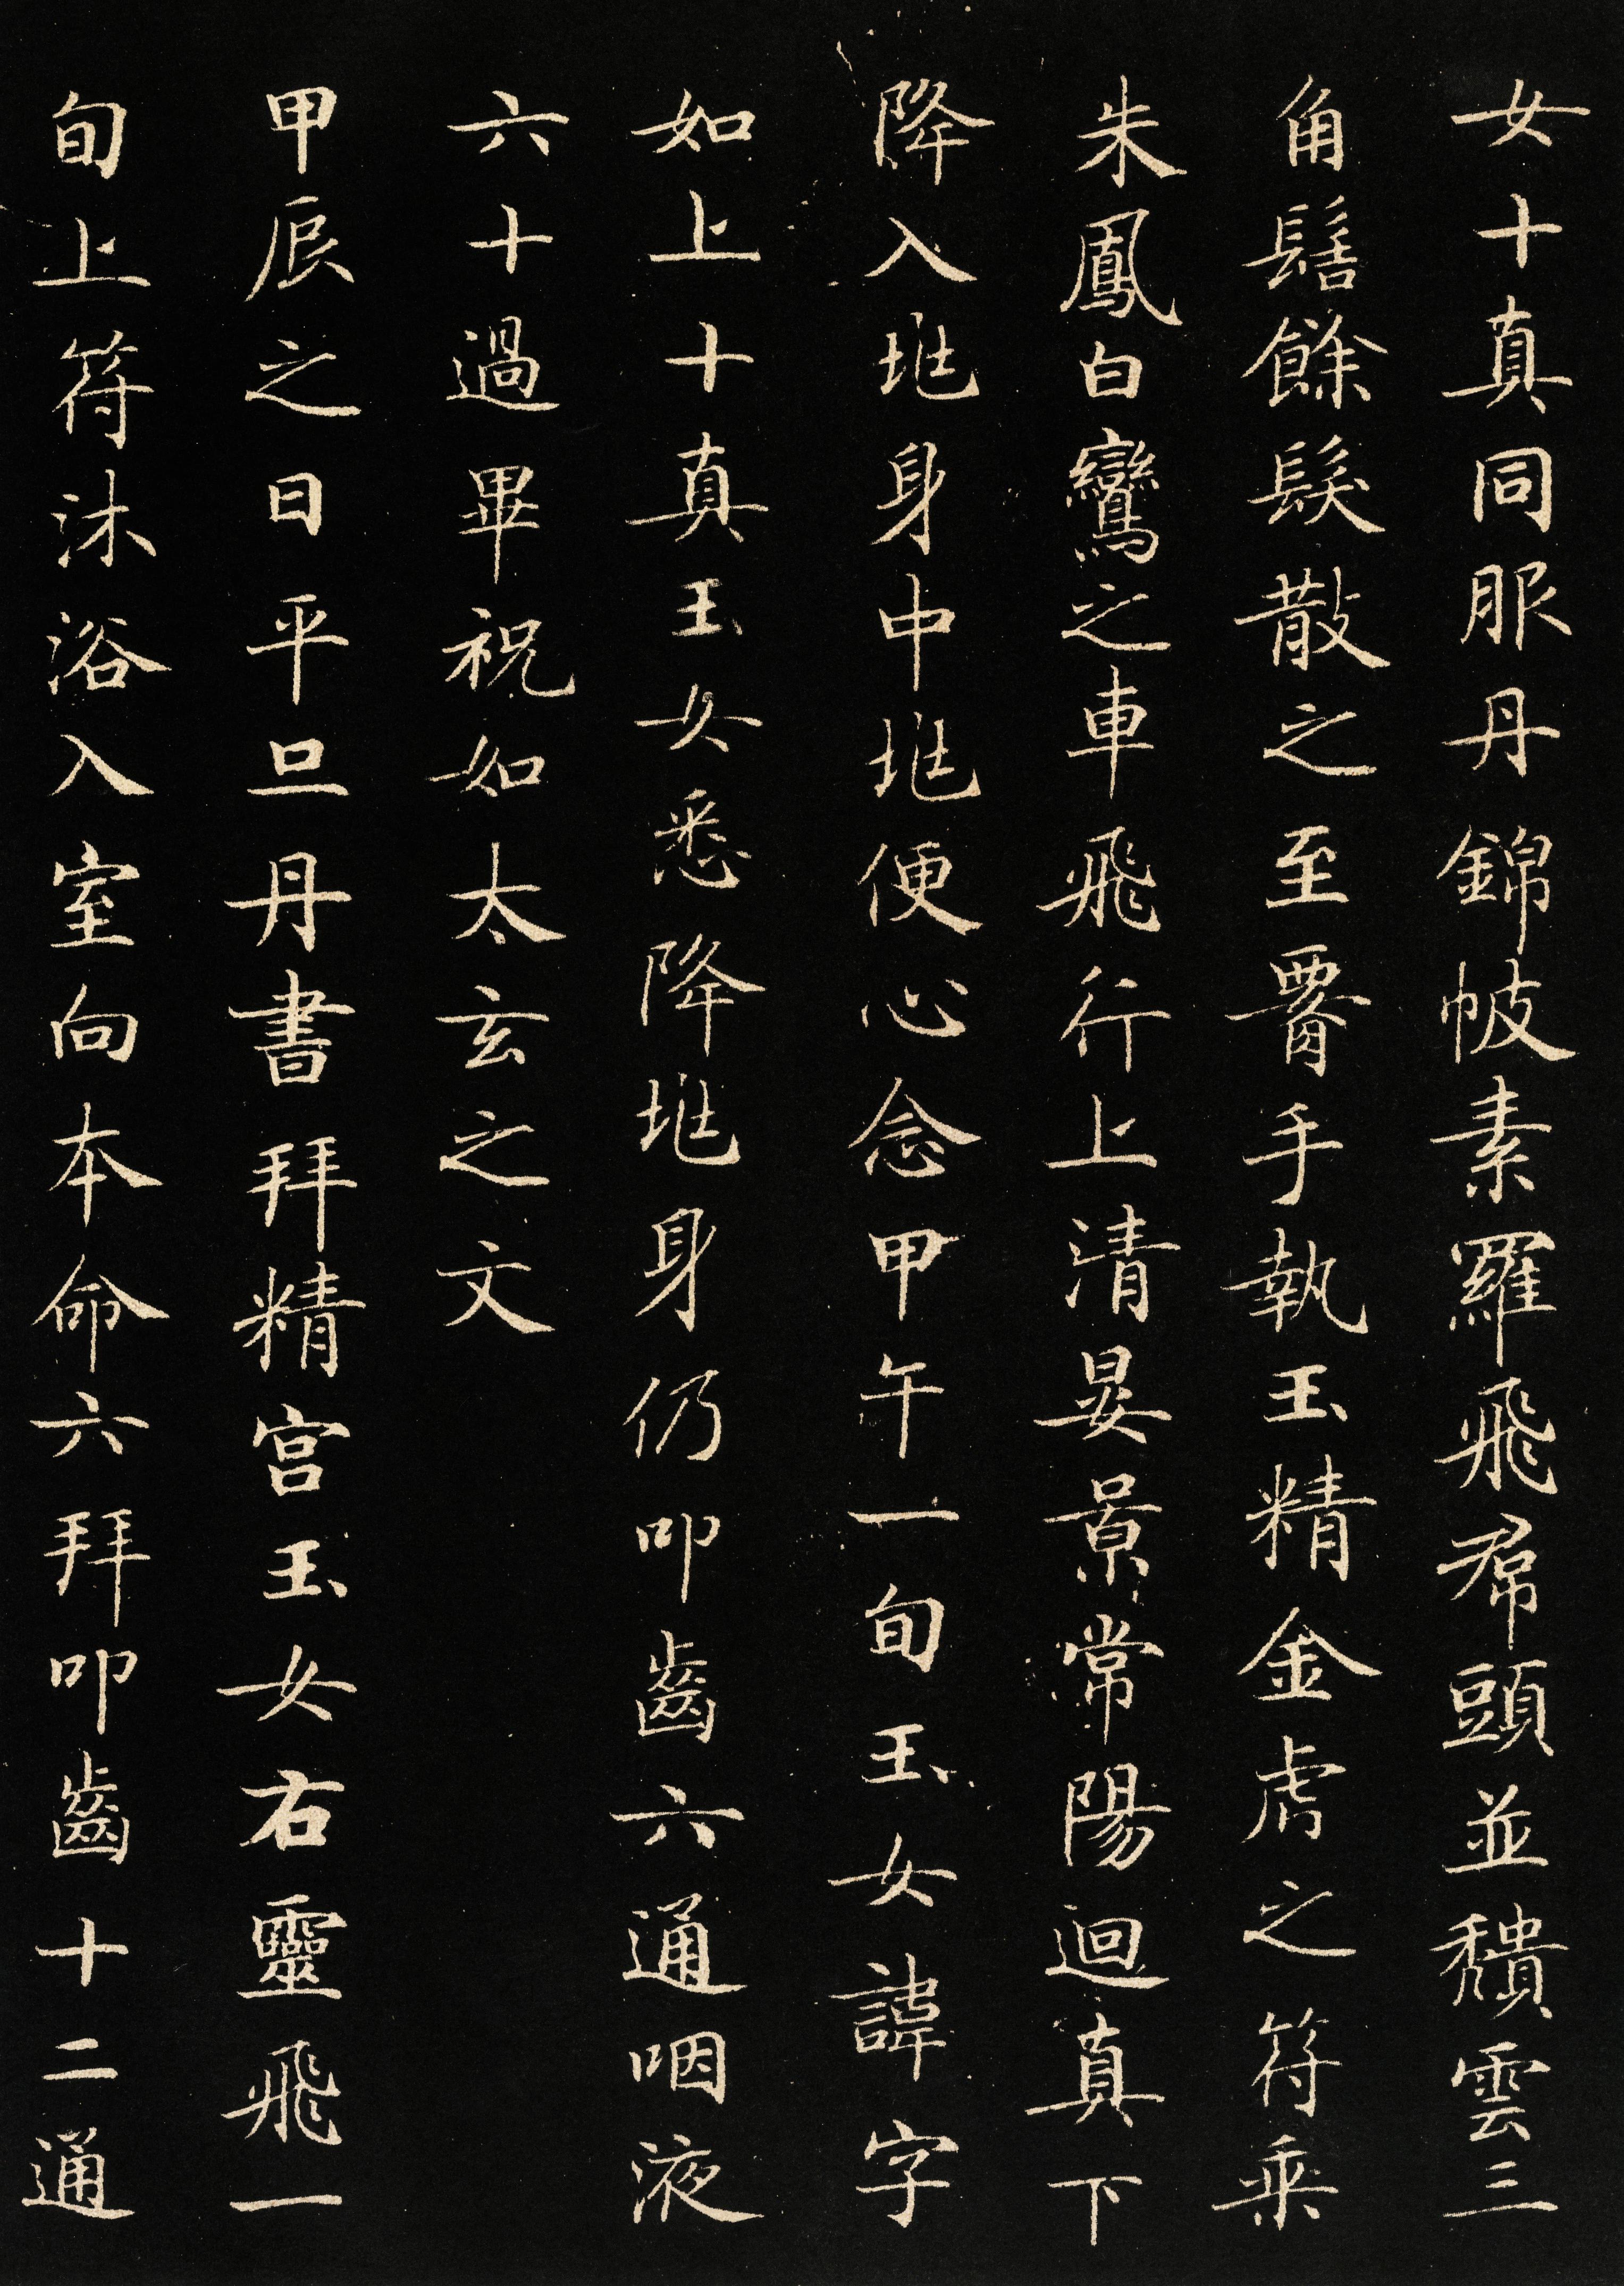 女十真同服丹錦帔素羅飛帬頭並穨雲三
角髻餘髮散之至𦝫手執玉精金虎之符乘
朱鳳白鸞之車飛行上清晏景常陽迴真下
降入兆身中兆便心念甲午一旬玉女諱字
如上十真玉女悉降兆身仍叩齒六通咽液
六十過畢祝如太玄之文
甲辰之日平旦丹書拜精宮玉女右靈飛一
旬上符沐浴入室向本命六拜叩齒十二通